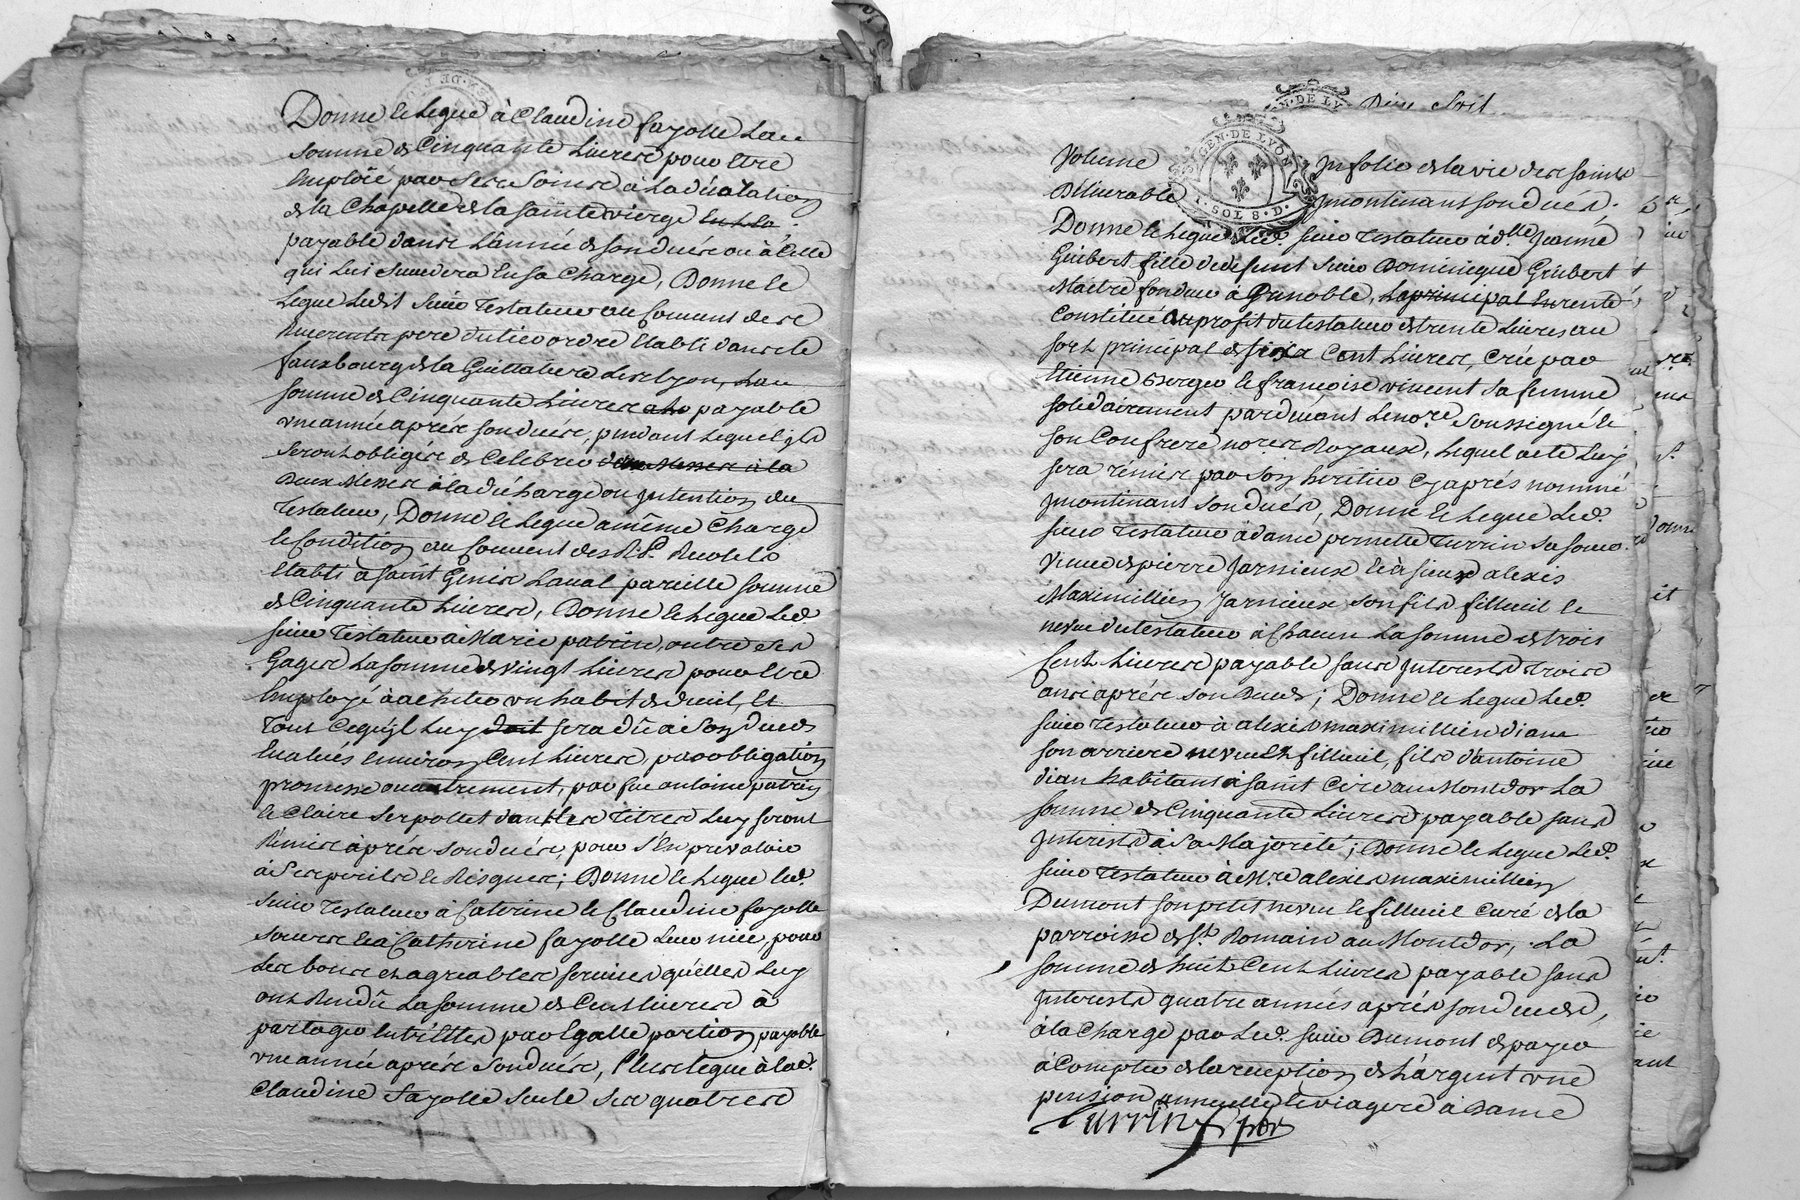 Donne & Legue à Claudine fayolle La
Somme de Cinquante Livres pour Etre
Employée par Ses Soins à La décoration
de la Chapelle de la sainte vierge
payable dans L'année de son décés ou à Celle
qui Lui Succedera En sa Charge, Donne &
Legue Ledit Sieur Testateur au Couvent des
Reverends pere du tiers ordre Etabli dans le
fauxbourg de la Guillotiere Les Lyon, La
Somme de Cinquante Livres payable
une année aprés son décés, pendant Lequel ils
Seront obligés de Celebrer des Messes à la
Deux Messes à la décharge ou Intention du
Testateur, Donne & Legue a même Charge
& Condition au Couvent des R.P. Recolets
Etabli à Saint Genis Laval pareille Somme
de Cinquante Livres, Donne & Legue Led.
Sieur Testateur à Marie patrin, outre Ses
Gages La Somme de vingt Livres pour Etre
Employé à acheter un habit de deuil, Et
Tout Ce qu'il Luy doit sera dû à Son décés
Evalués Environ Cent Livres, par obligation
promesse ou autrement, par feu antoine patrin
& Claire Serpollet dont les Titres Luy seront
Rémis aprés son décés, pour S'En prévaloir
à Ses perils & Risques; Donne & Legue led.
Sieur Testateur à Caterine & Claudine fayolle
Soeurs & à Catherine fayolle Leur niéce, pour
Les bons et agreables services qu'elles Luy
ont Rendû La somme de Cent Livres à
partager Entr'Elles par Egalle portion payable
une année aprés son décés, Plus Legue à lad.
Claudine Fayolle Seule Ses quatres
Dixe Soit
GEN. DE LYON
1. SOL 8. D.
Volume In folio de la vie des saints
Délivrable Incontinant son décés.
Donne & Legue Led. Sieur Testateur à d.lle Jeanne
Guibert fille de defunt Sieur Dominique Guibert
Maitre fondeur à Grenoble, La principal En rente
Constitué au profit du testateur de trente Livres au
sort principal de six Cent Livres, Crée par
Etienne & françoise vincent sa femme
solidairement pardevant Le no.re Soussigné &
son Confrere no.res Royaux, Lequel acte Luy
sera rémis par son heritier Cy aprés nommé
Incontinant son décés, Donne & Legue Led.
Sieur Testateur à dame pernette Turrin sa soeur.
Veuve de pierre Jarnieux & à Sieur alexis
Maximillien Jarnieux son fils filleuil &
neveu du testateur à Chacun La somme de trois
Cent Livres payable sans Interests trois
ans aprés son décés; Donne & Legue Led.
Sieur Testateur à alexis maximillien dian
son arriere neveu & filleuil, fils d'antoine
dian habitant à saint Cire au Montdor La
somme de Cinquante Livres payable sans
Interests à sa Majorité; Donne & Legue Led.
Sieur Testateur à M.re alexis maximillien
Dumont son petit neveu & filleuil Curé de la
parroisse de S.t Romain au Montdor, La
somme de huit Cent Livres payable sans
Interests quatre années aprés son décés,
à la Charge par Led. Sieur Dumont de payer
à Compter de la réception de l'argent une
pension annuelle & viagere à Dame
Turrin